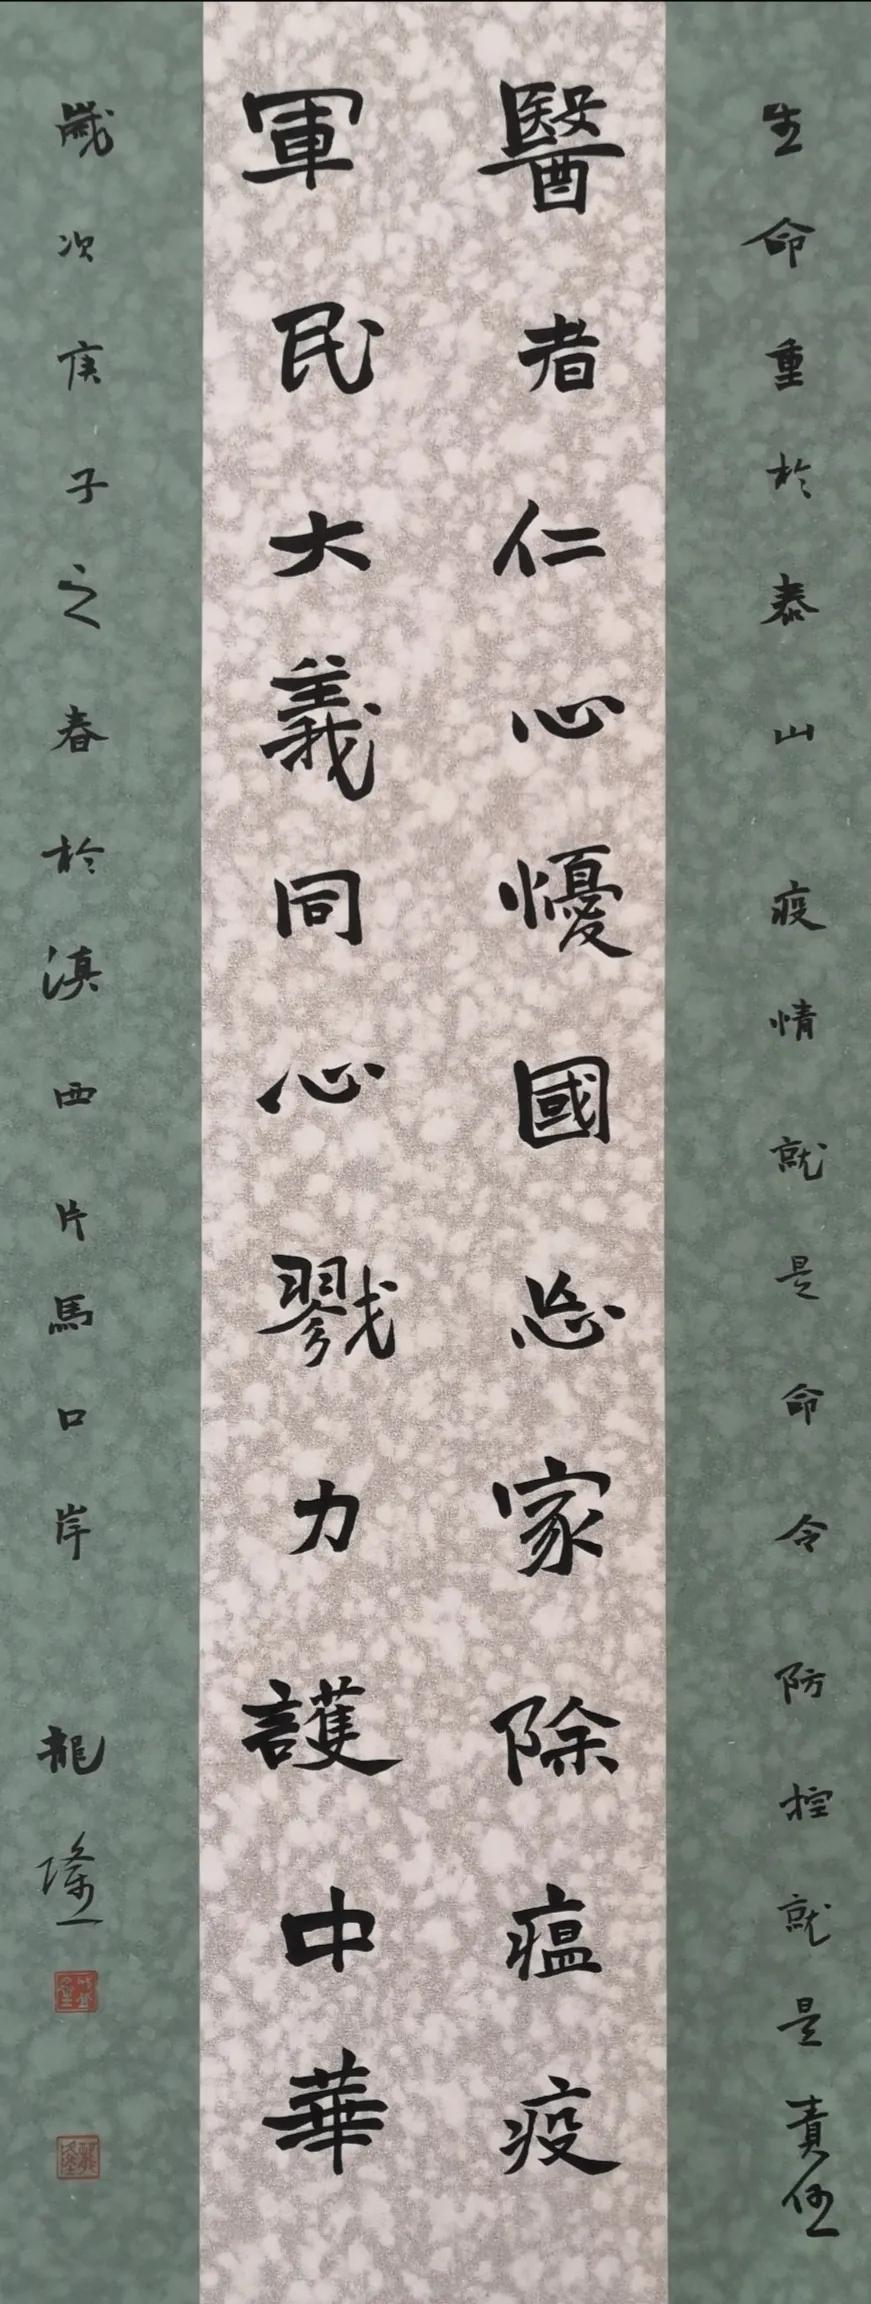 生命重於泰山 疫情就是命令 防控就是責任
醫者仁心懮國忘家除瘟疫
軍民大義同心戮力護中華
歲次庚子之春於滇西片馬口岸 龍隆